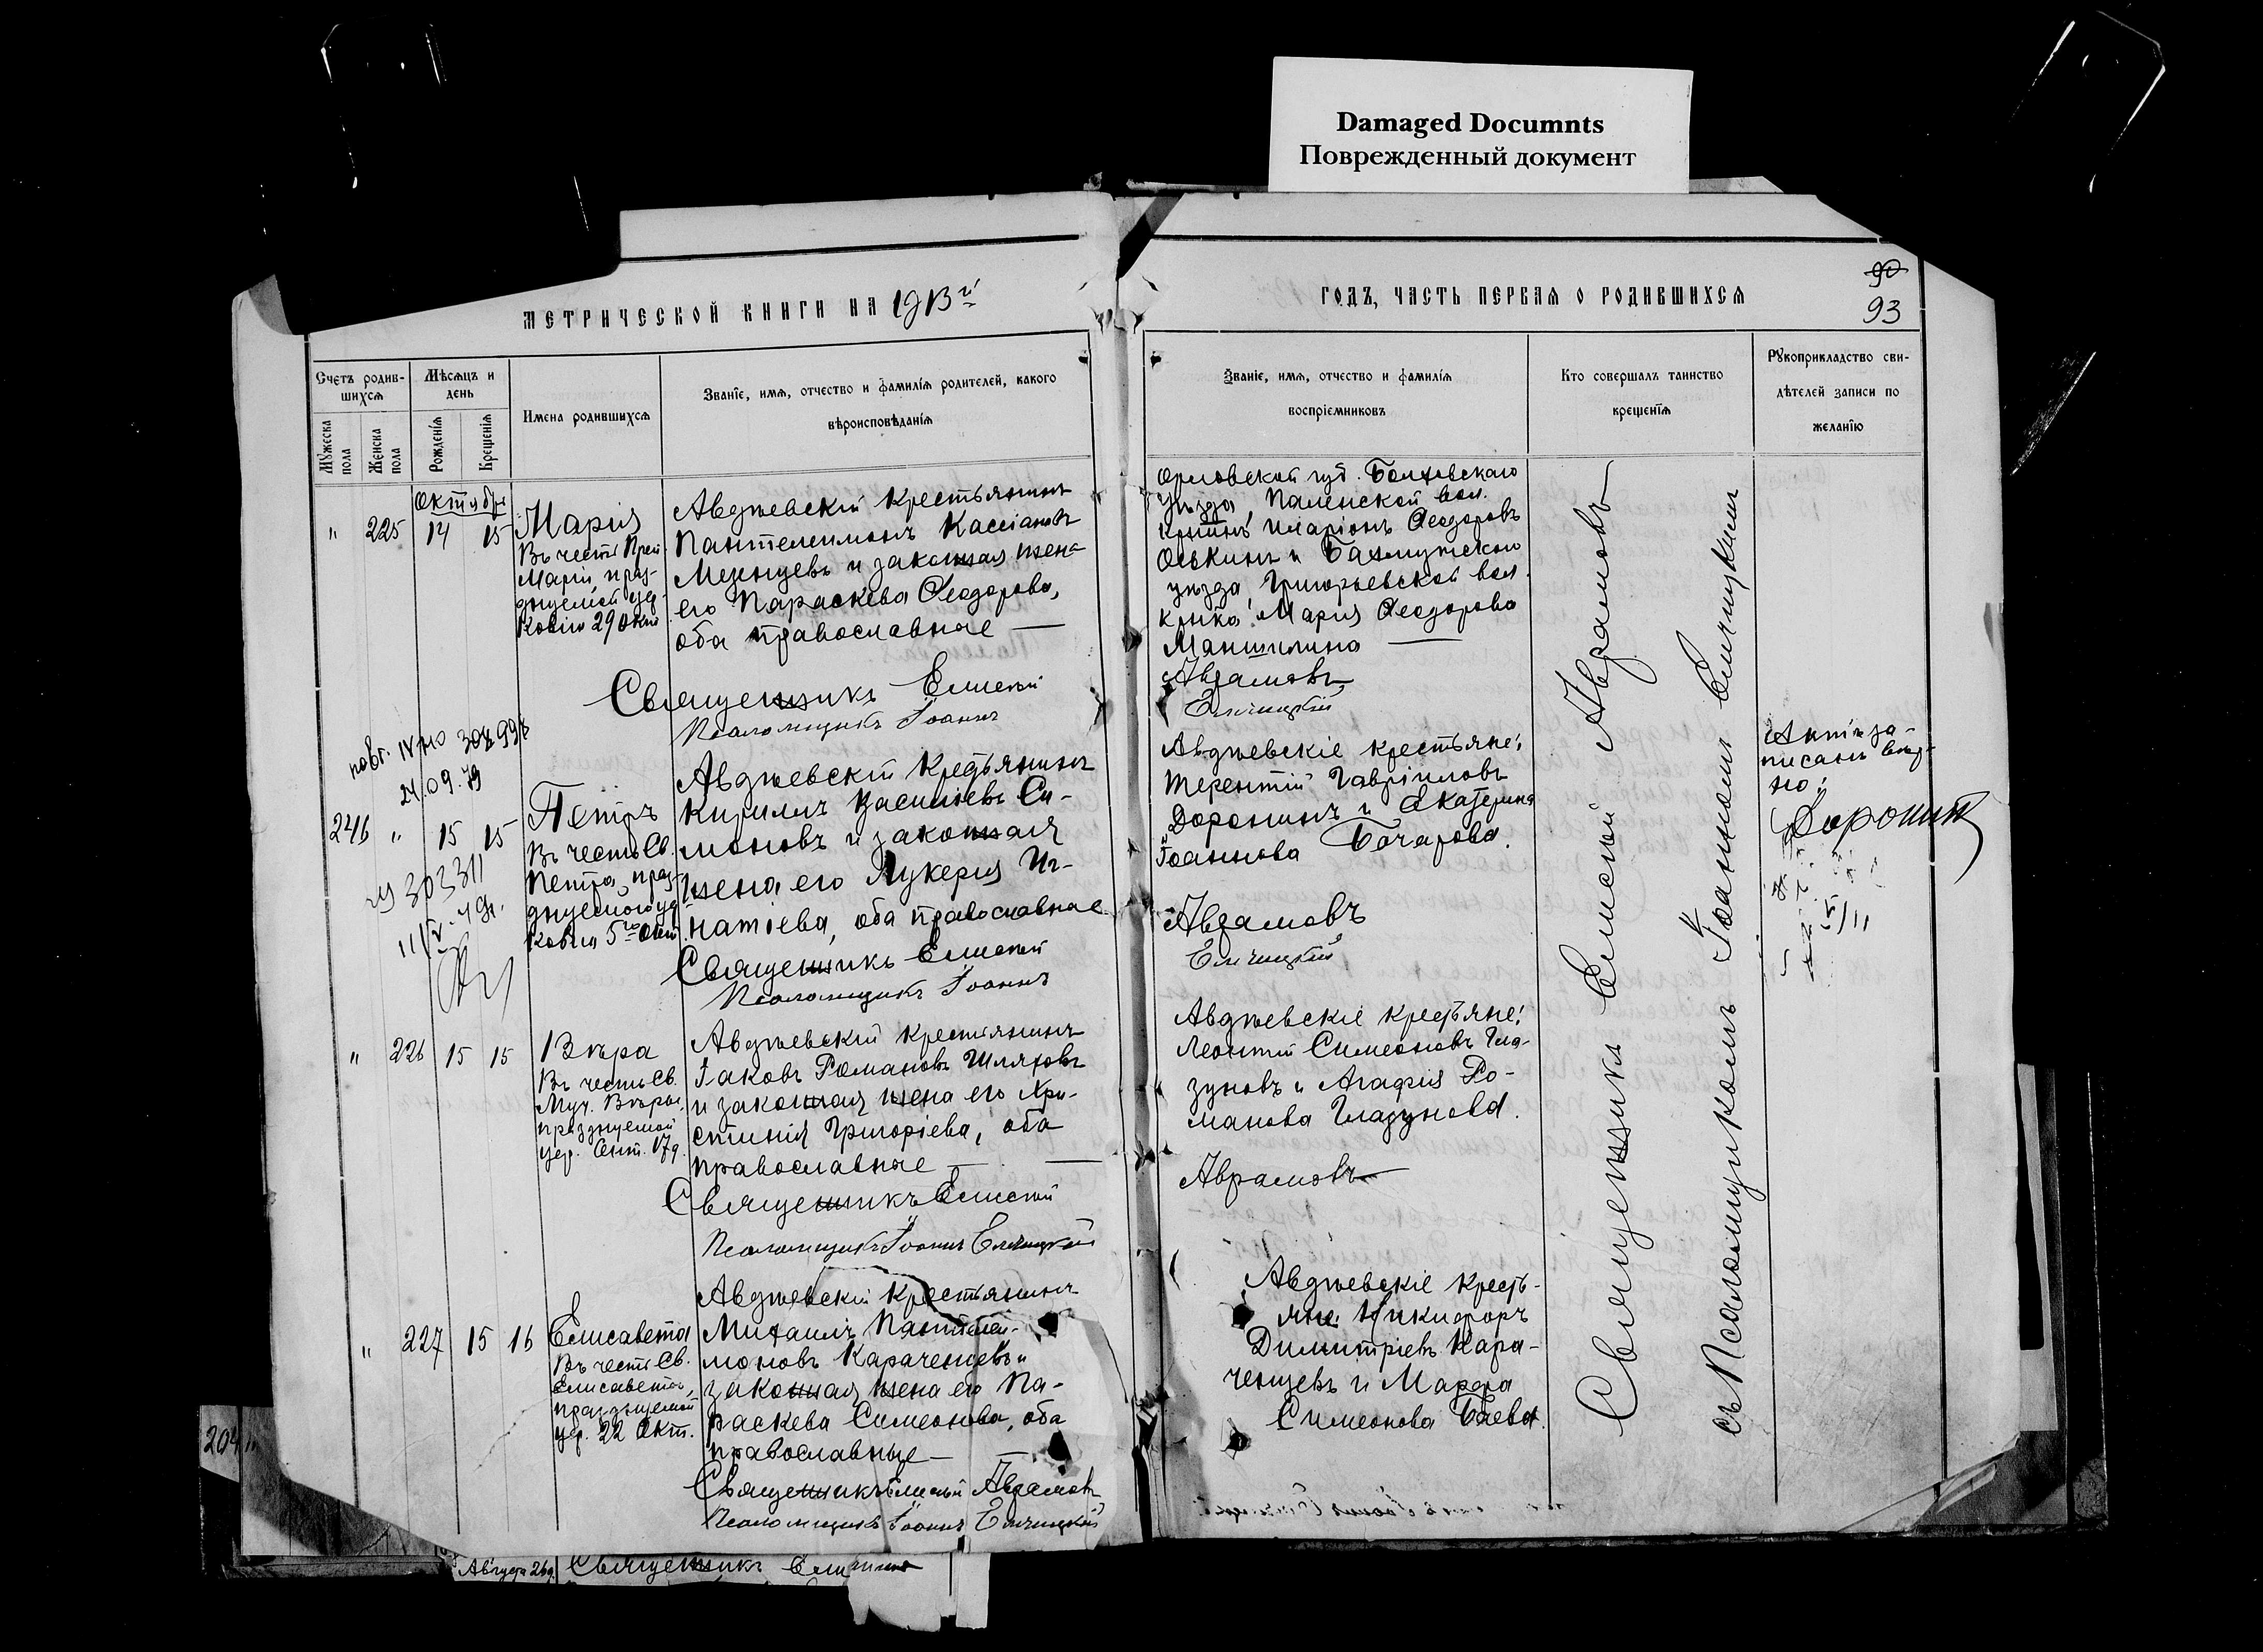 Damaged Documnts
Поврежденный документ
МЕТРИЧЕСКОЙ КНИГИ НА 1913 й
ГОДЪ, ЧАСТЬ ПЕРВАЯ О РОДИВШИХСЯ
90
93
Счетъ родив-
шихся
Мужеска пола
Женска пола
Мѣсяцъ и
день
Рожденія
Крещенія
Имена родившихся
Званіе, имя, отчество и фамилія родителей, какого
вѣроисповѣданія
Званіе, имя, отчество и фамилія
воспріемниковъ
Кто совершалъ таинство
крещенія
Рукоприкладство сви-
дѣтелей записи по
желанію
Октябрь
" 225 14 15
Марія
Въ честь Преп.
Маріи, праз-
днуемой цер-
ковію 29 Окт.
Авдѣевскій крестьянинъ
Пантелеимонъ Кассіановъ
Мезенцевъ и законная жена
его Параскева Ѳеодорова,
оба православные —
Священникъ Елисей
Псаломщикъ Іоаннъ
Орловской губ. Болховскаго
уѣзда, Паленской вол.
кр-нъ Иларіонъ Ѳеодоровъ
Оськинъ и Бахмутскаго
уѣзда, Григорьевской вол.
кр-ка Марія Ѳеодорова
Маншилина —
Аврамовъ
Елчицкій
повт. IV-НО
24.09.79
246 " 15 15
303311
Петръ
Въ честь Св.
Петра, праз-
днуемого цер-
ковію 5го Окт.
Авдѣевскій крестьянинъ
Кириллъ Васильевъ Си-
моновъ и законная
жена его Лукерія Иг-
натіева, оба православные
Священникъ Елисей
Псаломщикъ Іоаннъ
Авдѣевскіе крестьяне:
Терентій Гавріиловъ
Доронинъ и Екатерина
Іоаннова Бочарова.
Аврамовъ
Елчицкій
Доронинъ
" 226 15 15
Вѣра
Въ честь Св.
Муч. Вѣры,
празднуемой
цер. Сент. 17 д.
Авдѣевскій крестьянинъ
Іаковъ Романовъ Шляховъ
и законная жена его Хри-
стинія Григоріева, оба
православные —
Священникъ Елисей
Псаломщикъ Іоаннъ Елчицкій
Авдѣевскіе крестьяне:
Леонтій Симеоновъ Гла-
зуновъ и Агафія Ро-
манова Глазунова.
Аврамовъ
" 227 15 16
Елисавета
Въ честь Св.
Елисаветы,
празднуемой
цер. 22 Окт.
Авдѣевскій крестьянинъ
Михаилъ Пантелеи-
моновъ Караченцевъ и
законная жена его Па-
раскева Симеонова, оба
православные —
Священникъ Елисей Аврамовъ
Псаломщикъ Іоаннъ Елчицкій
Авдѣевскіе кресть-
яне: Никифоръ
Димитріевъ Кара-
ченцевъ и Марфа
Симеонова Баева.
Священникъ Елисей Аврамовъ
съ Псаломщикомъ Іоанномъ Елчицкимъ
204
Августа 26 д. Священникъ